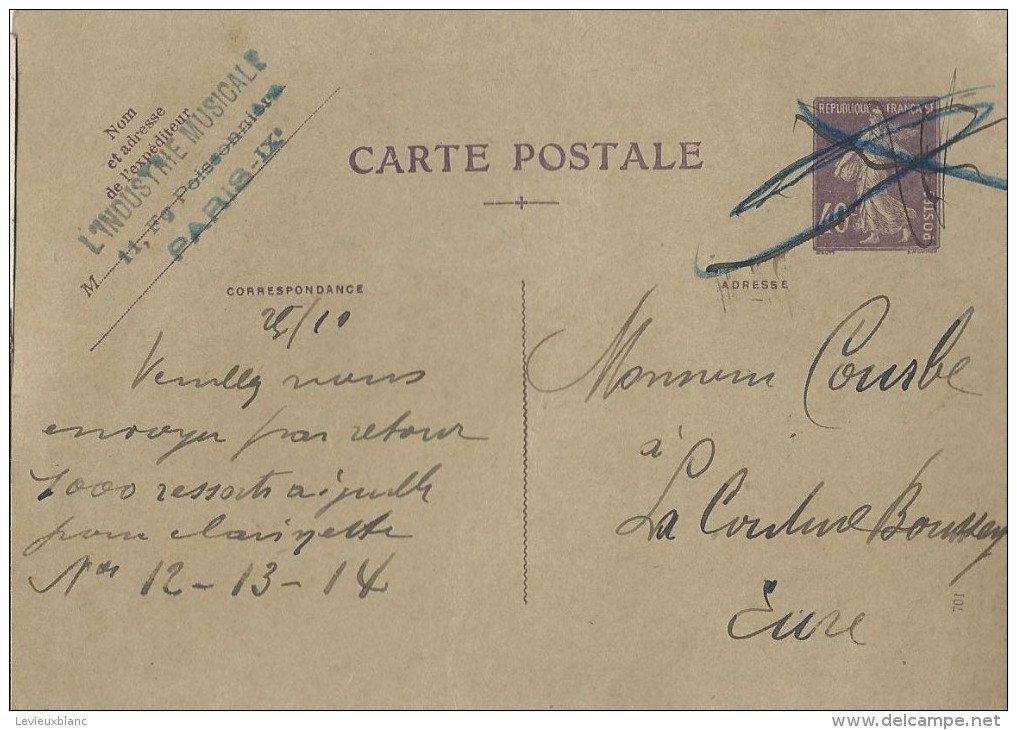 Nom
et adresse
de l'expéditeur
L'INDUSTRIE MUSICALE
M. 11, Fg Poissonnière
PARIS-IXe
CARTE POSTALE
RÉPUBLIQUE FRANÇAISE
40c
POSTES
CORRESPONDANCE
25/10
Veuillez nous
envoyer par retour
1000 ressorts aiguille
pour clarinette
Nos 12-13-14
ADRESSE
Monsieur Courbe
à
La Couture Boussey
Eure
107
Levieuxblanc
www.delcampe.net